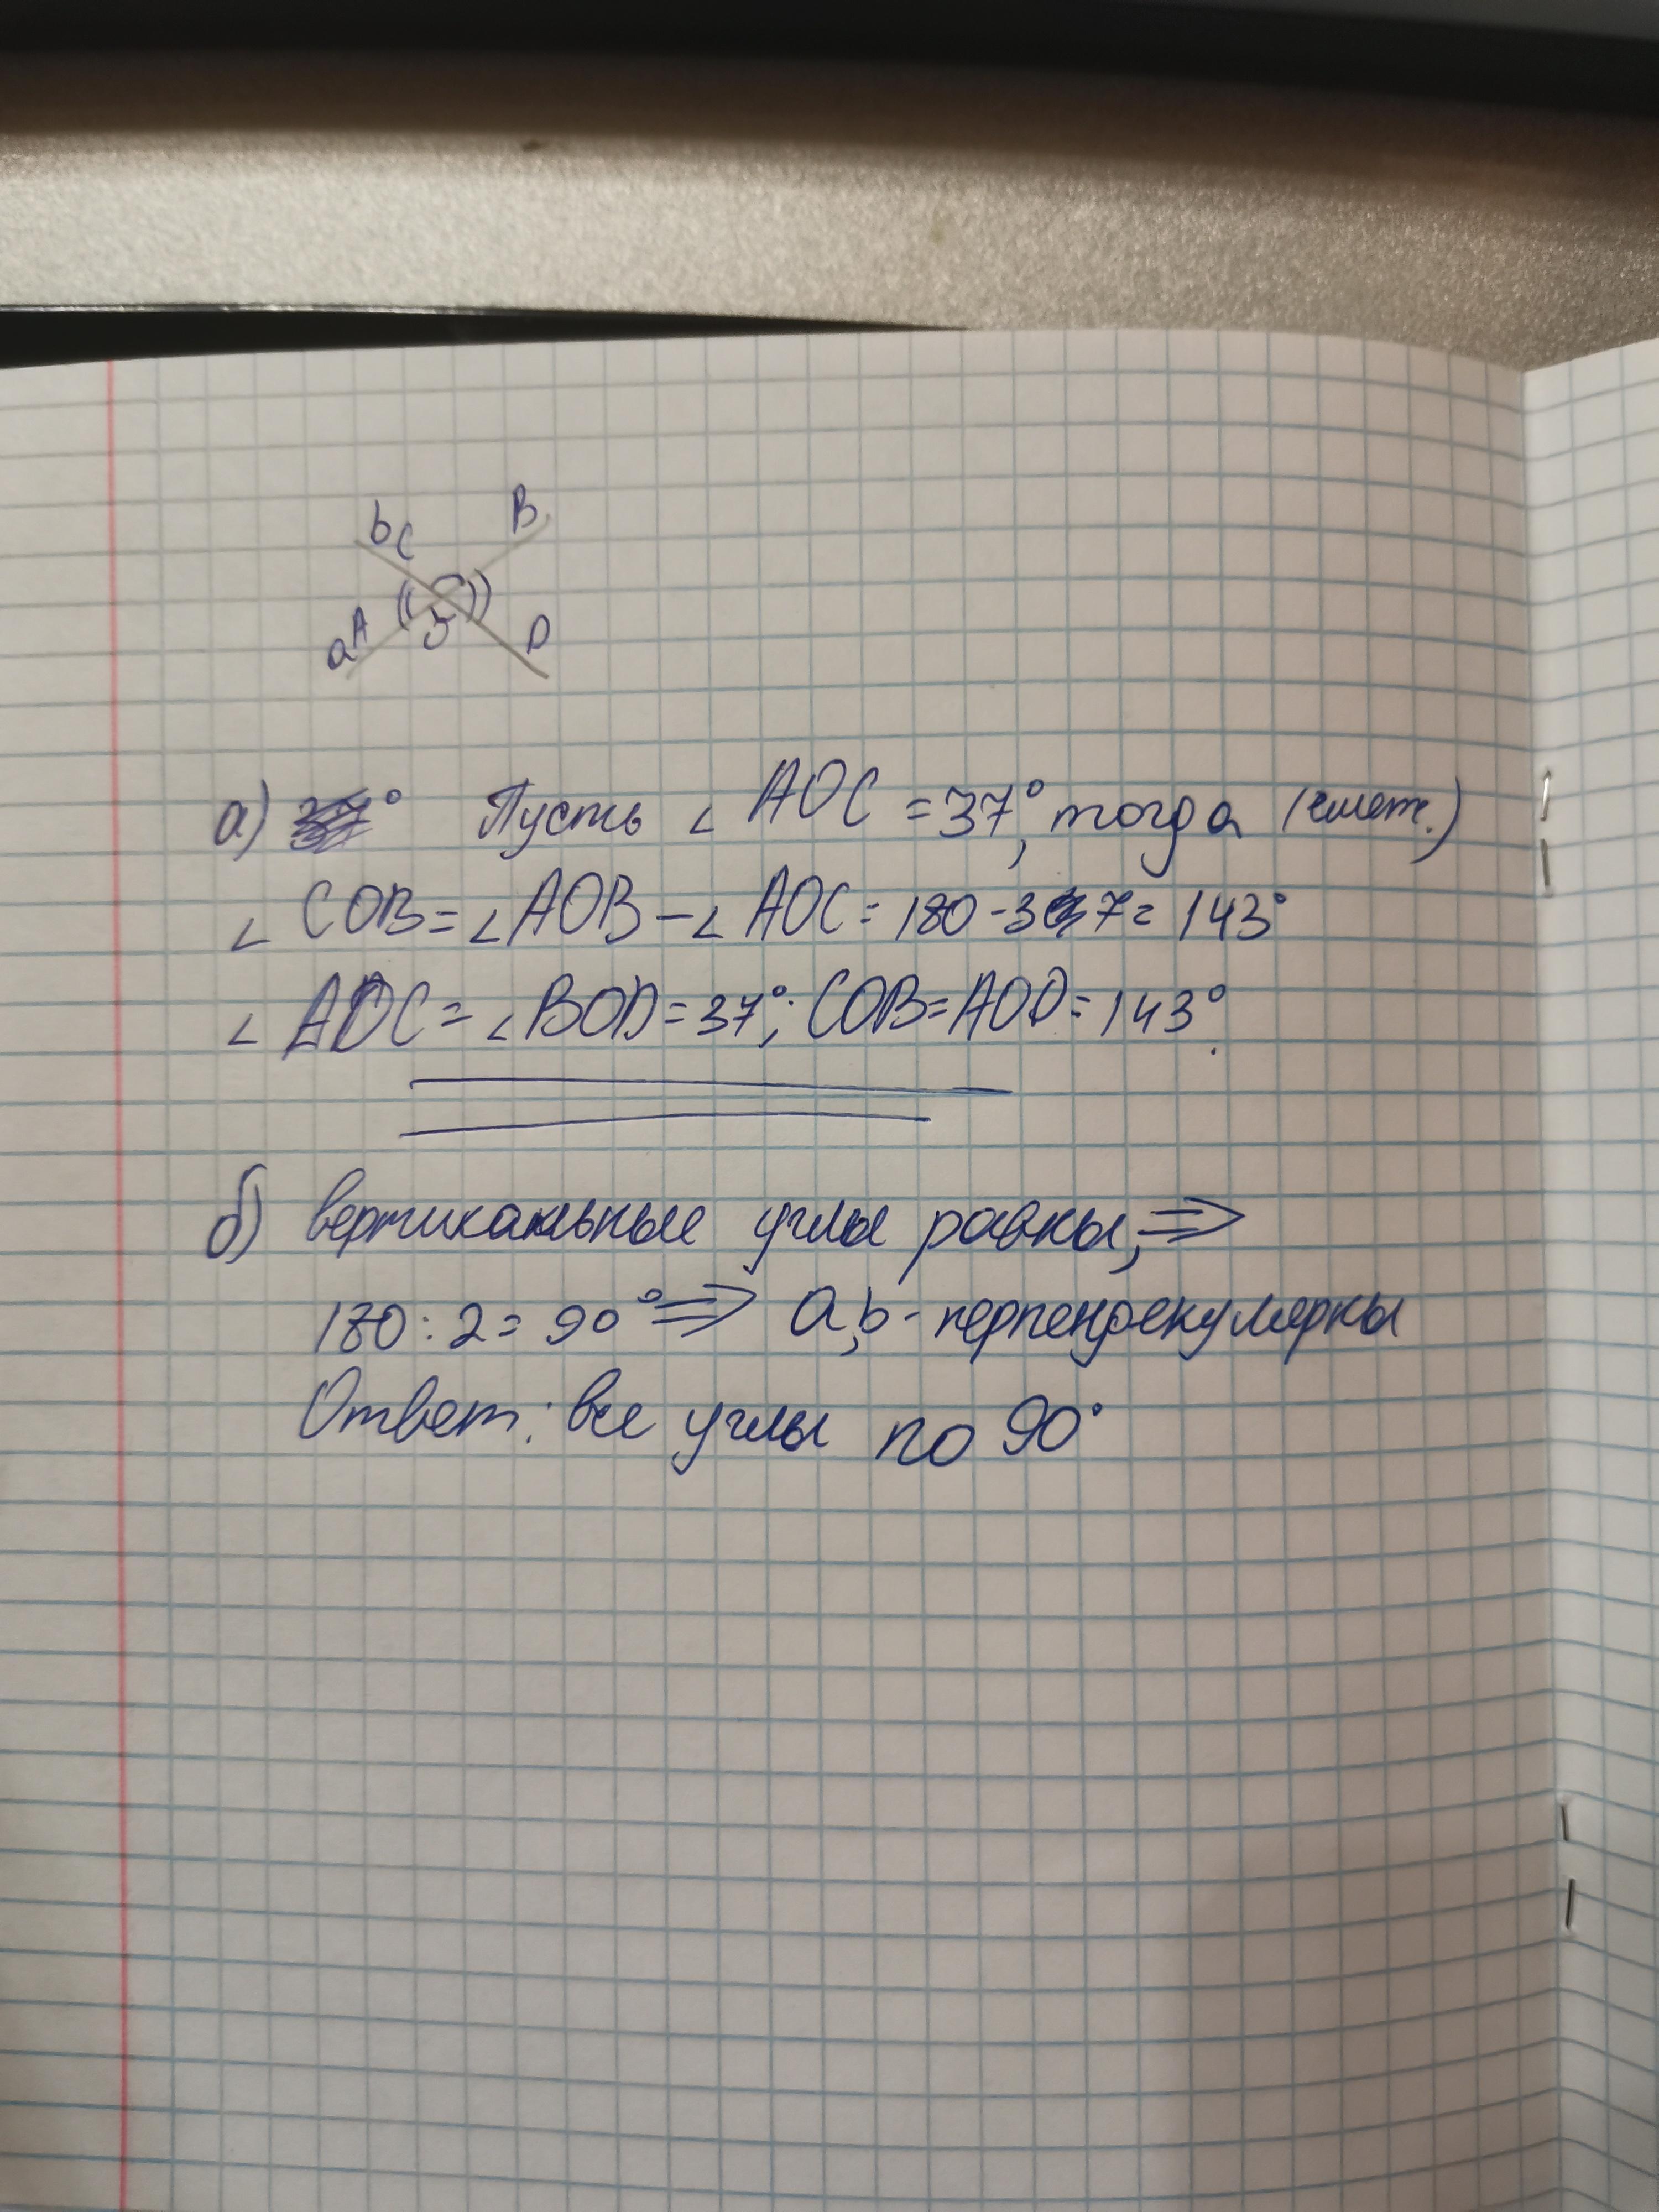 b C B
a A D
а) 37° Пусть ∠ AOC = 37°, тогда (смеж.)
∠ COB = ∠ AOB - ∠ AOC = 180 - 37 = 143°
∠ AOC = ∠ BOD = 37°; COB = AOD = 143°.
б) вертикальные углы равны, ⇒
180 : 2 = 90° ⇒ a, b - перпендекулярны
Ответ: все углы по 90°